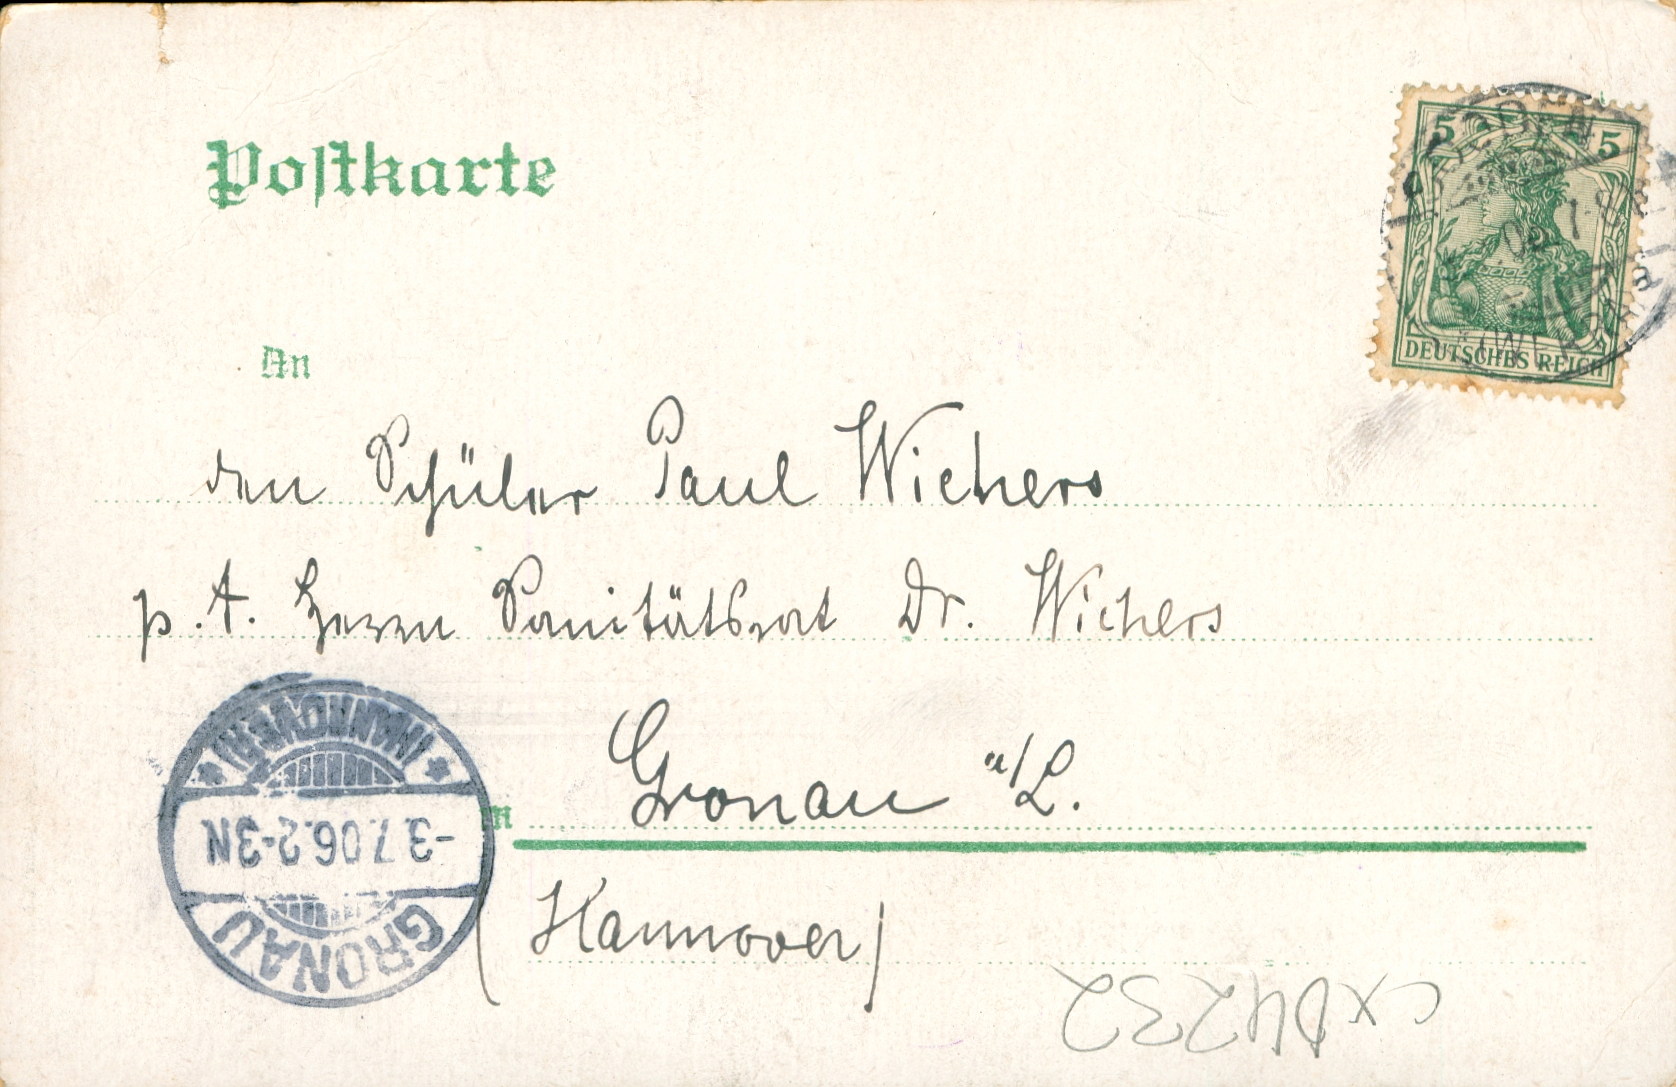 Postkarte
5 5
DEUTSCHES REICH
An
den Schüler Paul Wichers
p. A. Herrn Sanitätsrat Dr. Wichers
Gronau a/L.
in
(Hannover)
GRONAU
-3.7.06.2-3N
(HANNOVER)